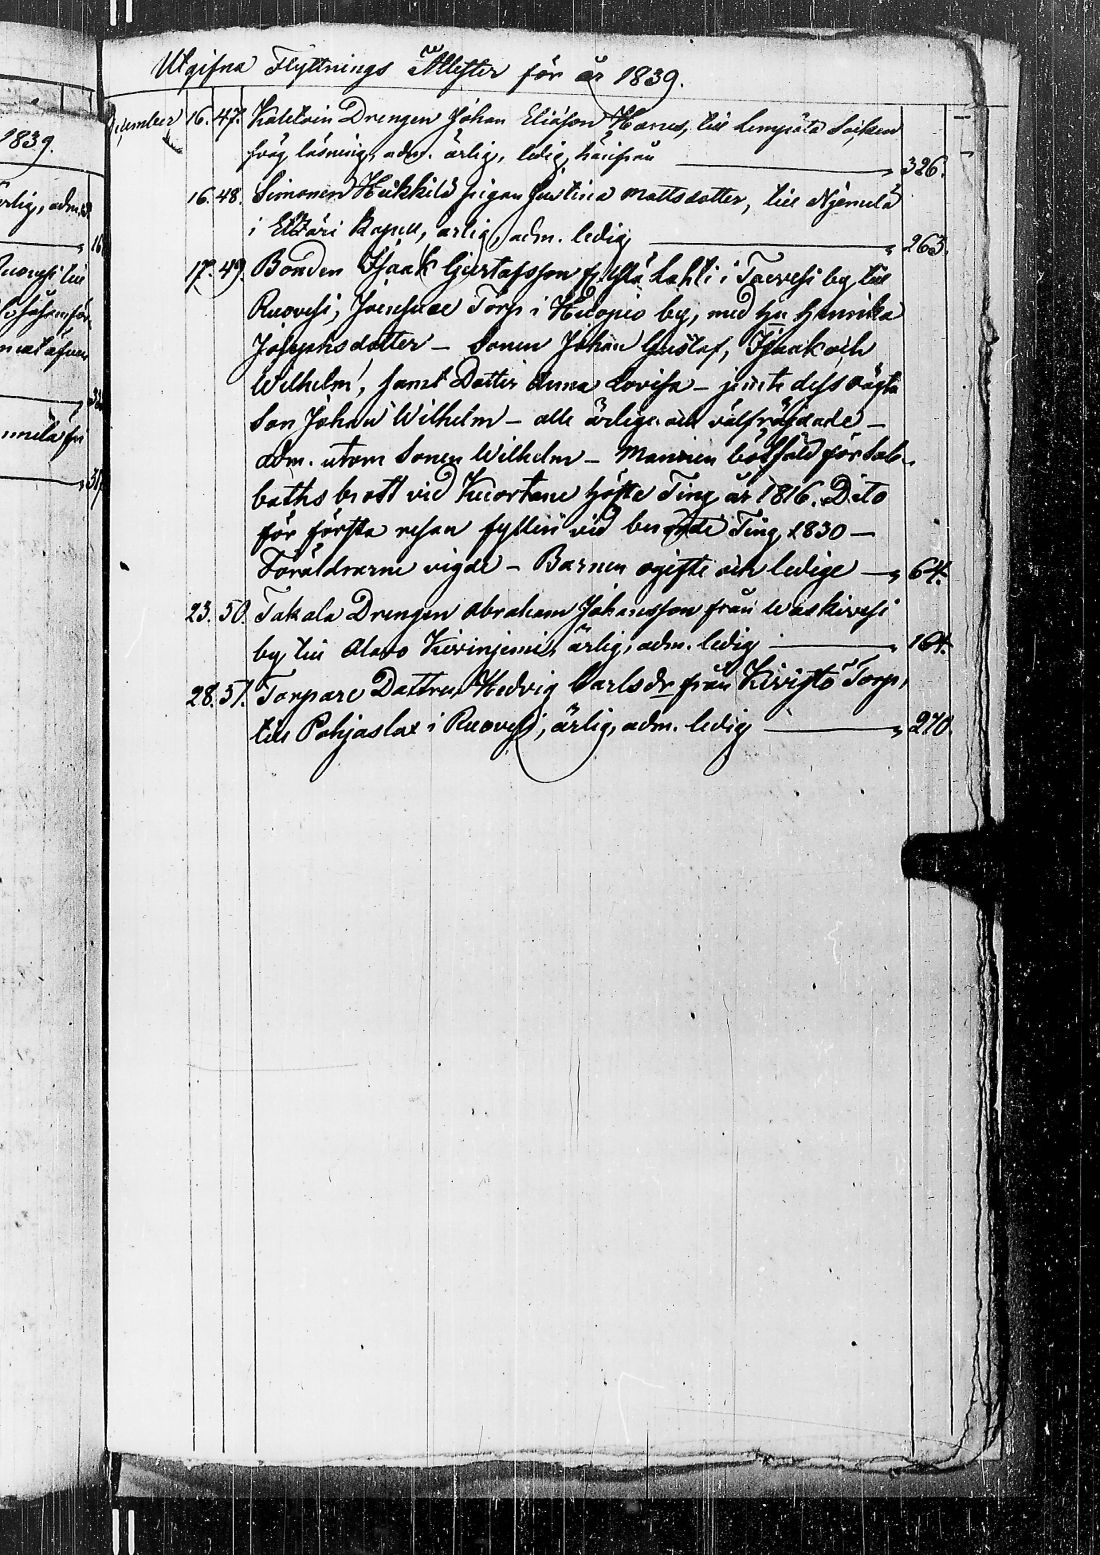 Utgifna Flyttnings Attester för år 1839.
December 16. 47. Drengen Johan Eliasson Hanes, till Lempäla Socken
svag läsning, adm. ärlig, ledig, härifrån 326.
16. 48. Simonen Heikkilä pigan Justina Mattsdotter, till
i Etzäri Kapell, ärlig, adm. ledig 263.
17. 49. Bonden Isaak Gustafsson fr. Ylä Lahti i by till
Ruovesi, Torp i by, med Hu Henrika
Josephsdotter – Sonen Johan Gustaf, Isaak och
Wilhelm, samt Dotter Anna Lovisa – jemte dess oägta
Son Johan Wilhelm – alle ärlige och välfrägdade –
adm. utom Sonen Wilhelm – Mannen bötfäld för sab-
baths brott vid Kuortane höste Ting år 1816. Dito
för första resan fylleri vid Ting 1830 –
Föräldrarne vigde – Barnen ogifte och ledige 64.
23. 50. Takala Drengen Abraham Johansson från Waskivesi
by till Alavo Kuvinjemi, ärlig, adm. ledig 164.
28. 51. Torpare Dottren Hedvig Carlsdr från Kivistö Torp,
till Pohjaslax i Ruovesi, ärlig, adm. ledig 270.
1839.